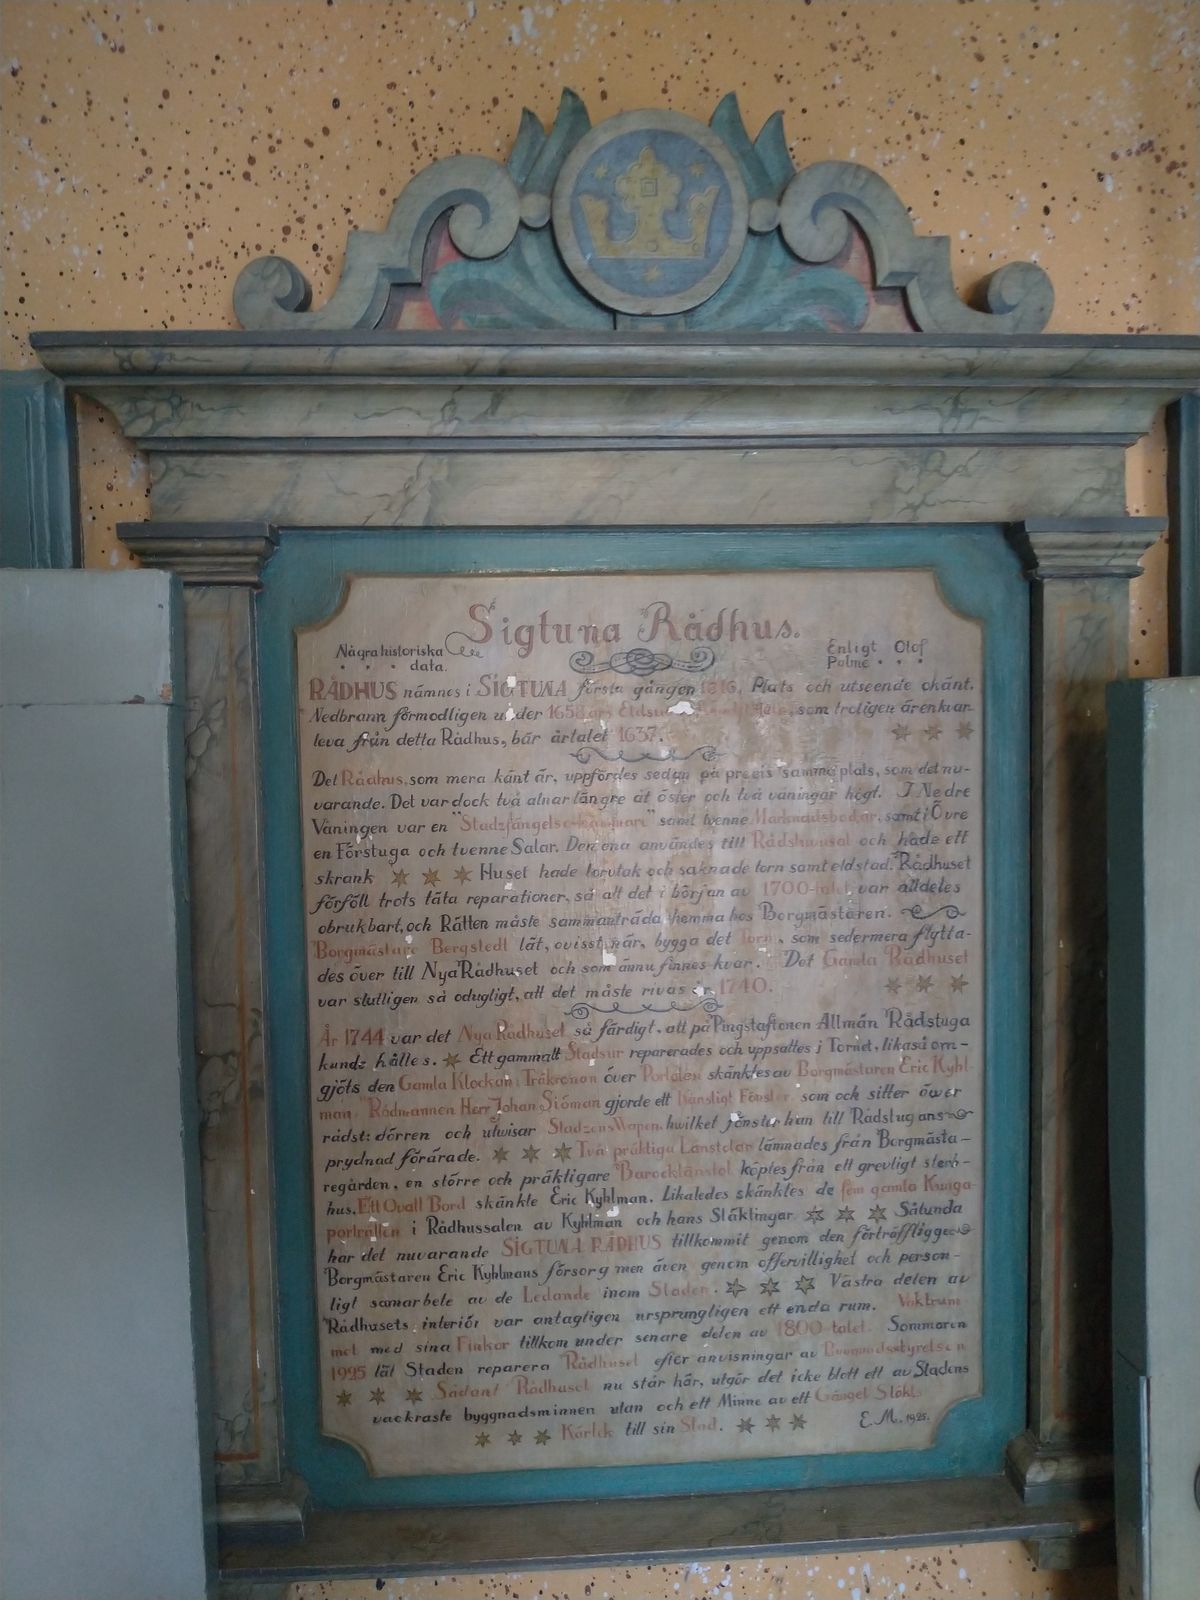 Sigtuna Rådhus.
Några historiska data.
Enligt Olof Palme
RÅDHUS nämnes i SIGTUNA första gången 1316. Plats och utseende okänt.
Nedbrann förmodligen under 1658 års Eldsu som troligen är en kvar-
leva från detta Rådhus, bär årtalet 1637.
Det Rådhus, som mera känt är, uppfördes sedan på precis samma plats, som det nu-
varande. Det var dock två alnar längre åt öster och två våningar högt. I Nedre
Våningen var en "Stadzfängelse-kammare" samt tvenne Marknadsbodar, samt i Övre
en Förstuga och tvenne Salar. Den ena användes till Rådshussal och hade ett
skrank Huset hade torvtak och saknade torn samt eldstad. Rådhuset
förföll trots täta reparationer, så att det i början av 1700-talet var alldeles
obrukbart, och Rätten måste sammanträda hemma hos Borgmästaren.
Borgmästare Bergstedt lät, ovisst när, bygga det Torn, som sedermera flytta-
des över till Nya Rådhuset och som ännu finnes kvar. Det Gamla Rådhuset
var slutligen så odugligt, att det måste rivas år 1740.
År 1744 var det Nya Rådhuset så färdigt, att på Pingstaftonen Allmän Rådstuga
kundz hålles. Ett gammalt Stadsur reparerades och uppsattes j Tornet, likaså om-
gjöts den Gamla Klockan. Träkronan över Portalen skänktes av Borgmästaren Eric Kyhl-
man. Rådmannen Herr Johan Siöman gjorde ett konstligt Fönster, som och sitter över
rådst: dörren och utwisar Stadzens Wapen. hwilket fönster han till Rådstugans
prydnad förärade. Två präktiga Länstolar lämnades från Borgmästa-
regården, en större och präktigare Barocklänstol köptes från ett grevligt sterb-
hus. Ett Ovalt Bord skänkte Eric Kyhlman. Likaledes skänktes de fem gamla Kunga-
porträtten i Rådhussalen av Kyhlman och hans Släktingar. Sålunda
har det nuvarande SIGTUNA RÅDHUS tillkommit genom den förträfflige
Borgmästaren Eric Kyhlmans försorg men även genom offervillighet och person-
ligt samarbete av de Ledande inom Staden. Västra delen av
Rådhusets interiör var antagligen ursprungligen ett enda rum. Vaktrum-
met med sina Finkor tillkom under senare delen av 1800-talet. Sommaren
1925 lät Staden reparera Rådhuset efter anvisningar av Byggnadsstyrelsen.
Sådant Rådhuset nu står här, utgör det icke blott ett av Stadens
vackraste byggnadsminnen utan och ett Minne av ett Gånget Släkts
Kärlek till sin Stad.
E. M. 1925.